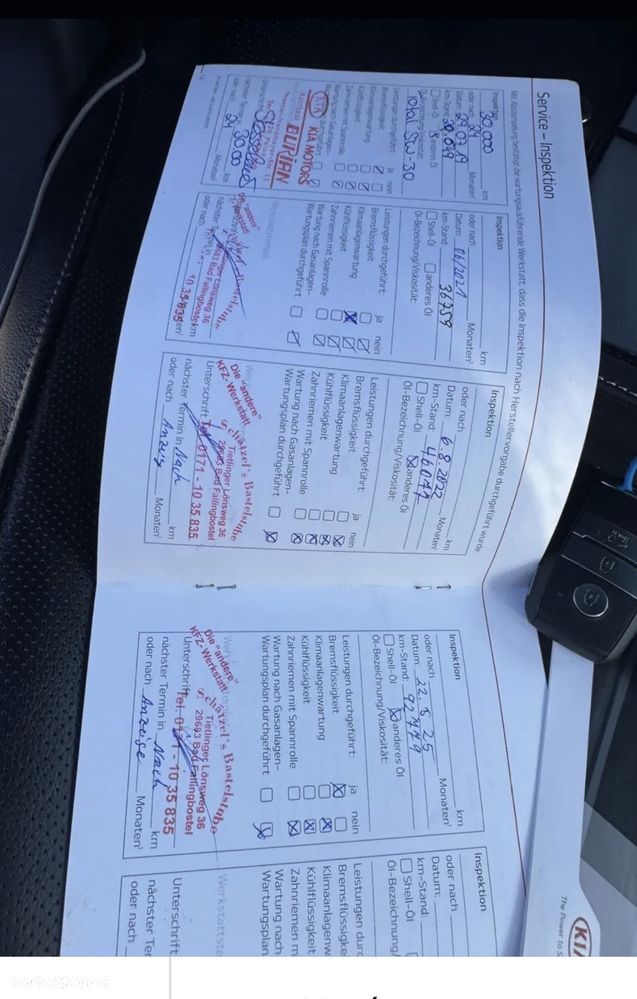 Service – Inspektion
Mit Abstempelung bestätigt die wartungsausführende Werkstatt, dass die Inspektion nach Herstellervorgabe durchgeführt wurde
Inspektion
30.000 km
oder nach 24 Monaten
Datum
km-Stand
Shell-Öl anderes Öl
Öl-Bezeichnung/Viskosität:
Total 5W30
Leistungen durchgeführt: ja nein
Bremsflüssigkeit
Klimaanlagenwartung
Kühlflüssigkeit
Zahnriemen mit Spannrolle
Wartung nach Gasanlagen-
KIA KIA MOTORS
BURJAN
30000 km
oder nach 24 Monaten
Inspektion
km
oder nach Monaten
Datum: 06/2021
km-Stand 36759
Shell-Öl anderes Öl
Öl-Bezeichnung/Viskosität:
Leistungen durchgeführt: ja nein
Bremsflüssigkeit
Klimaanlagenwartung
Kühlflüssigkeit
Zahnriemen mit Spannrolle
Wartung nach Gasanlagen-
Wartungsplan durchgeführt
Die "andere"
Bastelstube
29683 Bad Fallingbostel
10 35 835
Inspektion
km
oder nach Monaten
Datum: 6.9.2022
km-Stand: 46072
Shell-Öl anderes Öl
Öl-Bezeichnung/Viskosität:
Leistungen durchgeführt: ja nein
Bremsflüssigkeit
Klimaanlagenwartung
Kühlflüssigkeit
Zahnriemen mit Spannrolle
Wartung nach Gasanlagen-
Wartungsplan durchgeführt
Die "andere" Schätzel's Bastelstube
KFZ-Werkstatt Tietlinger Lönsweg 36
29683 Bad Fallingbostel
Unterschrift Tel. 0171 - 10 35 835
nächster Termin in Nach km
oder nach Anzeig Monaten
Inspektion
km
oder nach Monaten
Datum: 22.5.25
km-Stand: 92779
Shell-Öl anderes Öl
Öl-Bezeichnung/Viskosität:
Leistungen durchgeführt: ja nein
Bremsflüssigkeit
Klimaanlagenwartung
Kühlflüssigkeit
Zahnriemen mit Spannrolle
Wartung nach Gasanlagen-
Wartungsplan durchgeführt
Die "andere" Schätzel's Bastelstube
KFZ-Werkstatt Tietlinger Lönsweg 36
29683 Bad Fallingbostel
Unterschrift Tel. 0171 - 10 35 835
nächster Termin in Nach km
oder nach Anzeige Monaten
Inspektion
oder nach
Datum:
km-Stand:
Shell-Öl
Öl-Bezeichnung/
Leistungen durc
Bremsflüssigke
Klimaanlagenw
Kühlflüssigkeit
Zahnriemen m
Wartung nach
Wartungsplan
Werkstattste
Unterschrift
nächster Ter
oder nach
KIA
The Power to S